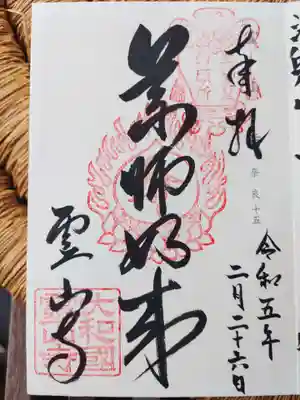 奉拝
奈良十五
令和五年
二月二十六日
薬師如来
霊山寺
大和國
霊山寺